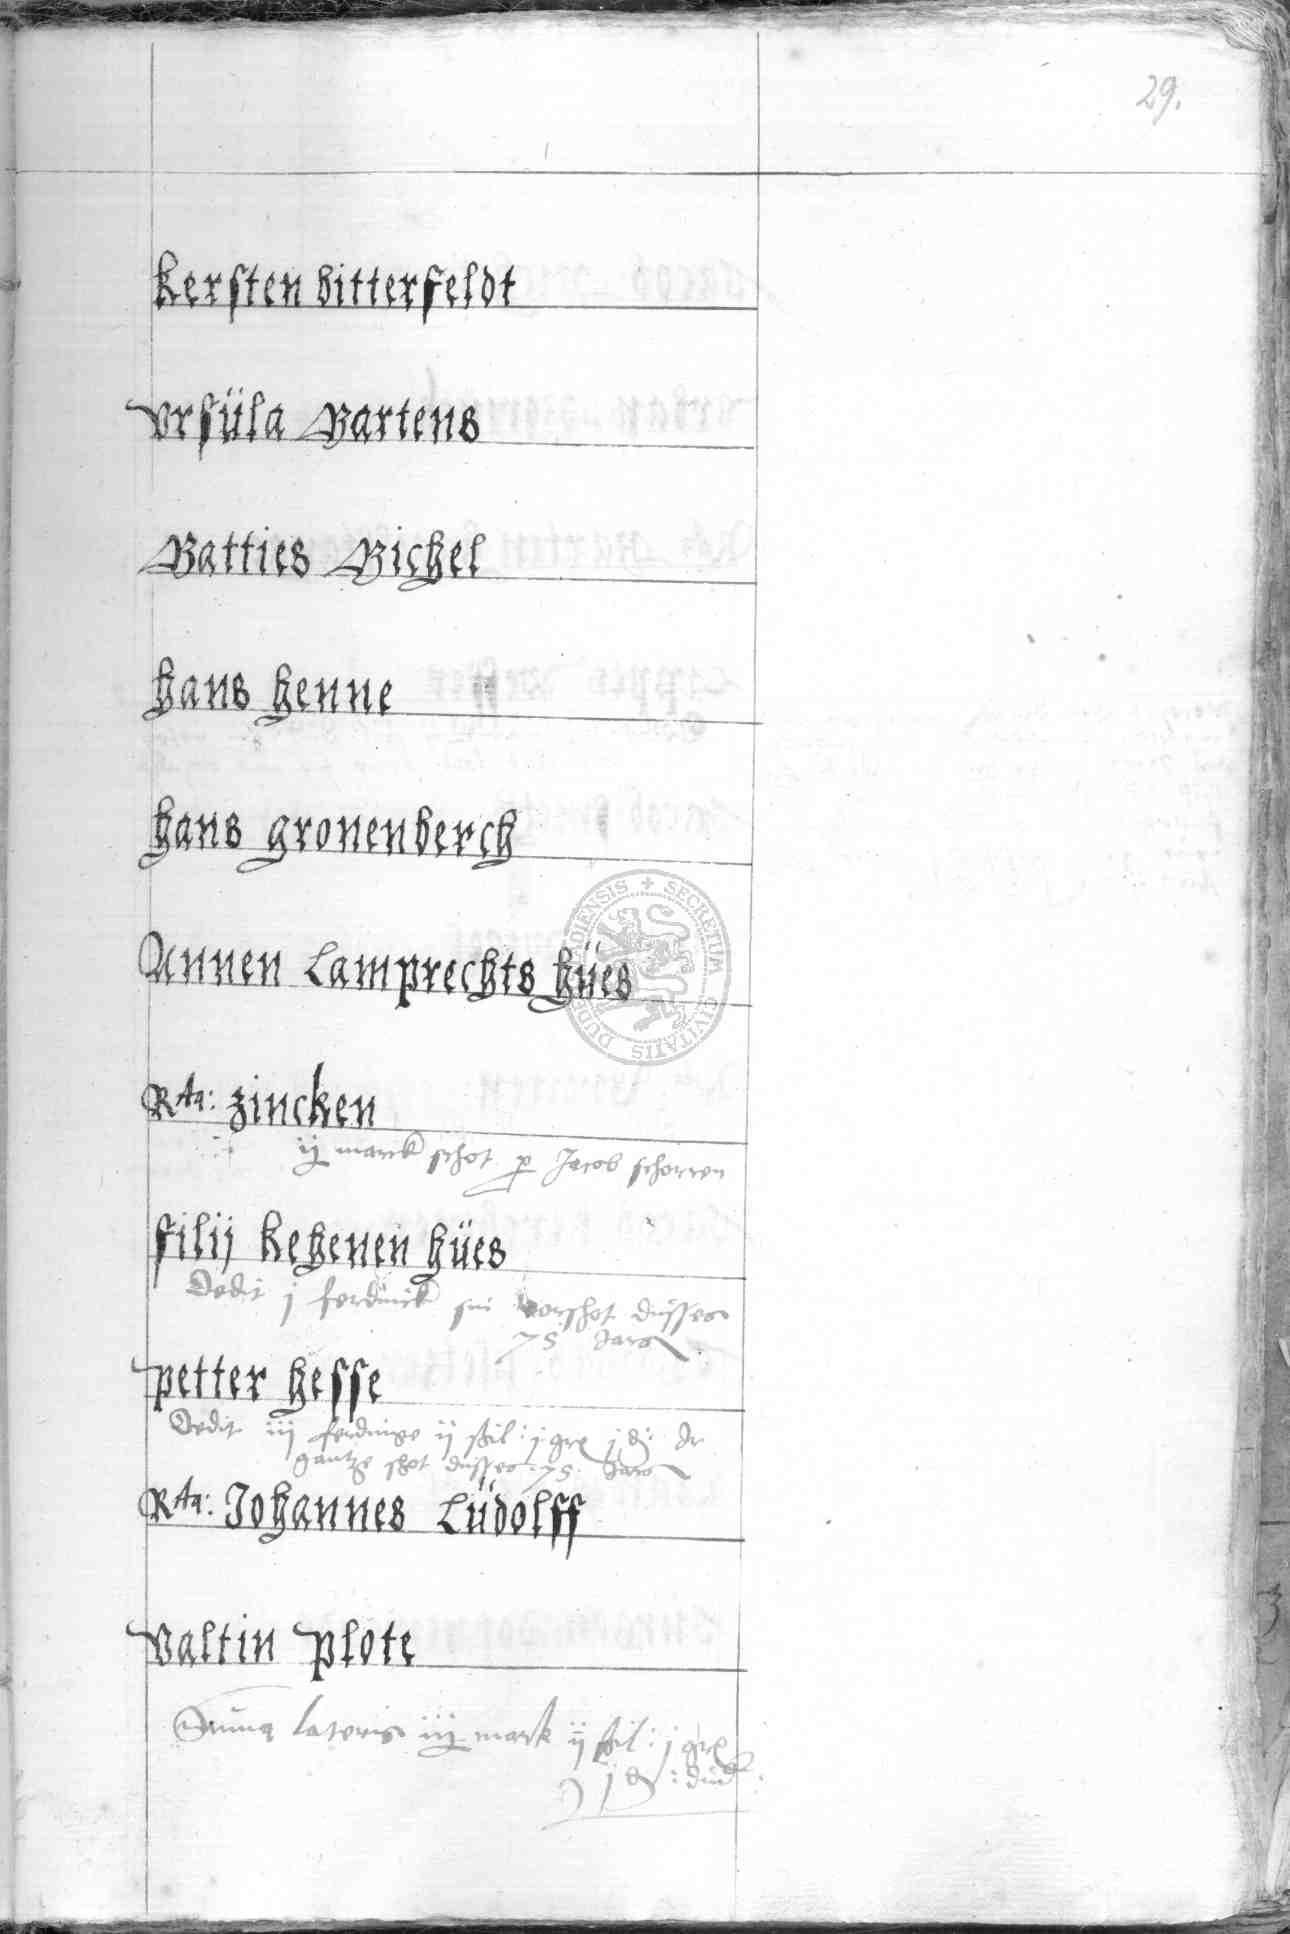 29.
Kersten bitterfeldt
Vrsüla Martens
Matties Michel
Hans Henne
Hans gronenberch
Annen Lamprechts hües
Rta: zincken
ij marck schot p Jacob schorren
filij Kehenen hües
Dedit j ferdinck sin vorschot düsses
75 Jars
petter Hesse
Dedit iij ferdinge ij ßil: j gr j
gantze schot düsses 75 Jars
Rta: Johannes Lüdolff
Valtin plote
Suma lateris iij mark ij ßil: j gr
SECRETUM CIVITATIS DUDE